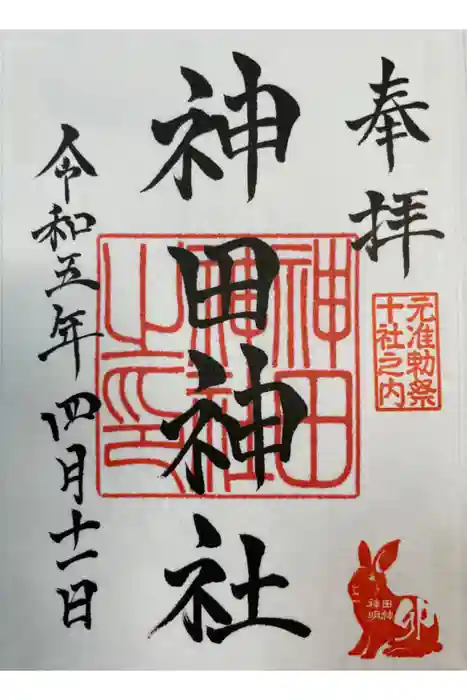 奉拝
元准勅祭
十社之内
神田神社
神田
神社
之印
令和五年四月十一日
神田
明神
卯